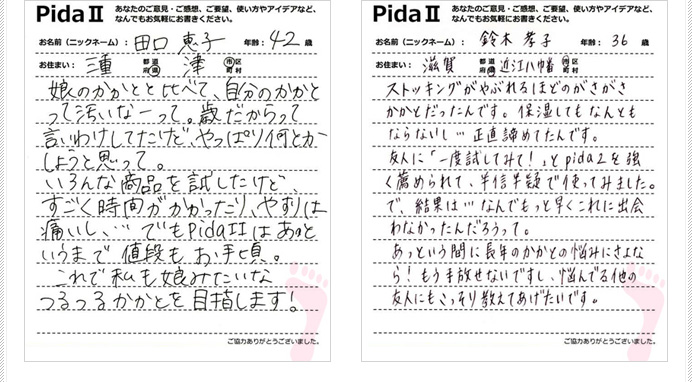 Pida II あなたのご意見・ご感想、ご要望、使い方やアイデアなど、
なんでもお気軽にお書きください。
お名前(ニックネーム): 田口 恵子 年齢: 42 歳
お住まい: 三重 都道府県 津 市区町村
娘のかかとと比べて、自分のかかと
って汚いなーって。歳だからって
言いわけしてたけど、やっぱり何とか
しようと思って。
いろんな商品を試したけど、
すごく時間がかかったり、やすりは
痛いし、… でもPidaIIはあっと
いうまで 値段もお手頃。
これで私も娘みたいな
つるつるかかとを目指します!
ご協力ありがとうございました。
Pida II あなたのご意見・ご感想、ご要望、使い方やアイデアなど、
なんでもお気軽にお書きください。
お名前(ニックネーム): 鈴木 孝子 年齢: 36 歳
お住まい: 滋賀 都道府県 近江八幡 市区町村
ストッキングがやぶれるほどのがさがさ
かかとだったんです。保湿してもなんとも
ならないし… 正直諦めてたんです。
友人に「一度試してみて!」とpida2を強
く薦められて、半信半疑で使ってみました。
で、結果は… なんでもっと早くこれに出会
わなかったんだろうって。
あっという間に長年のかかとの悩みにさよな
ら!もう手放せないですし、悩んでる他の
友人にもこっそり教えてあげたいです。
ご協力ありがとうございました。